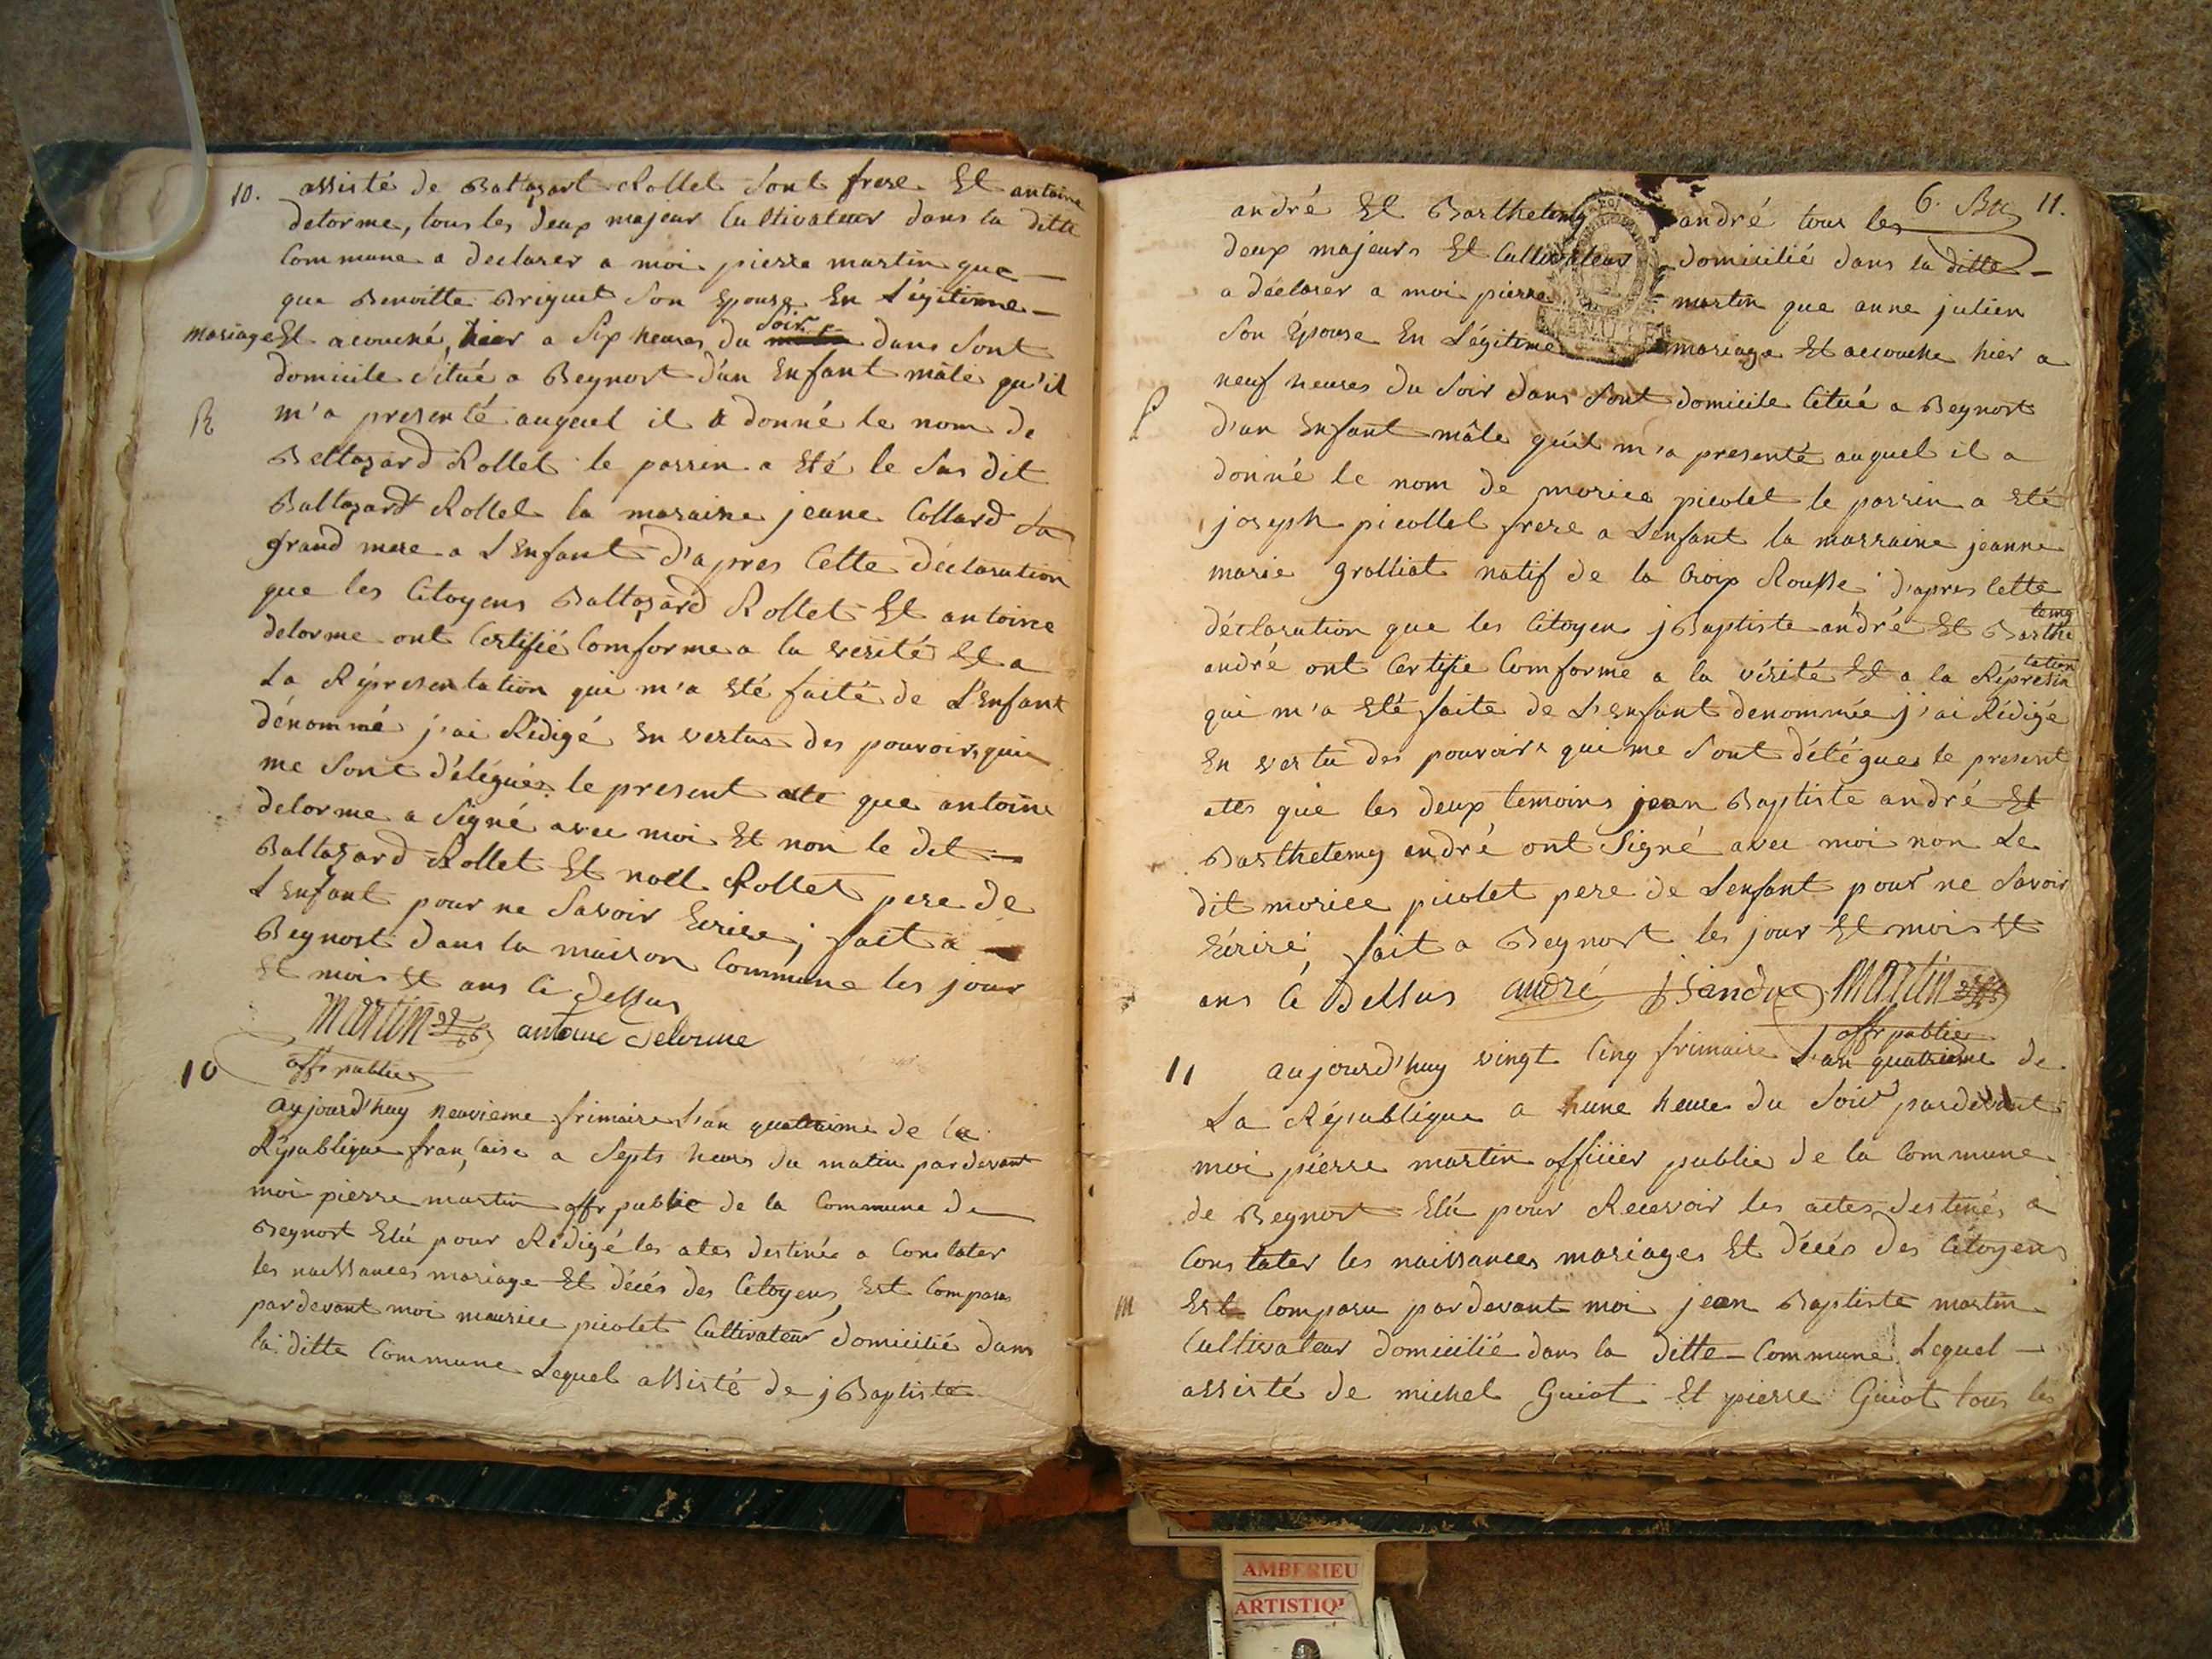 10. assisté de Baltazart Rollet sont frere Et antoine
delorme, tous les deux majeur Cultivateur dans la ditte
Commune a declarer a moi pierre martin que
que Benoitte Briguet son Epouse En Légitime
mariage Et acouché hier a six heures du soir dans sont
domicile situé a Beynost d'un Enfant mâle qu'il
R m'a presenté auquel il a donné le nom de
Beltazard Rollet le parrin a Eté le sus dit
Baltazard Rollet la maraine jeane Collard sa
grand mere a L'Enfant d'apres Cette déclaration
que les Citoyens Baltazard Rollet Et antoine
delorme ont Certifié Comforme a la verité Et a
La Réprésentation qui m'a Eté faite de L'Enfant
dénommé j'ai Rédigé En vertus des pouvoirs qui
me sont délégués le present acte que antoine
delorme a signé avec moi Et non le dit
Baltazard Rollet Et noël Rollet pere de
L'Enfant pour ne savoir Ecrire; fait a
Beynost dans la maison Commune les jour
Et mois Et ans Ci dessus
Martin antoine delorme
offr public
10
aujourd'huy neuvieme frimaire L'an quatrieme de la
République française a septs heurs du matin pardevant
moi pierre martin offr public de la Commune de
Beynost Elú pour Rédigé les actes destinés a Constater
les naissances mariage Et décés des Citoyens, Est Comparu
pardevant moi maurice picolet Cultivateur domicilié dans
la ditte Commune Lequel assisté de j Baptiste
6. 11.
andré Et Barthelemy andré tous les
deux majeurs Et Cultivateur domicilié dans la ditte
a déclarer a moi pierre martin que anne julien
son Epouse En Légitime mariage Et accouche hier a
neuf heures du soir dans sont domicile Citué a Beynost
P d'un Enfant mâle qu'il m'a presenté auquel il a
donné le nom de morice picolet le parrin a Eté
joseph picollet frere a L'enfant la marraine jeanne
marie grolliat natif de la Croix Rousse d'apres Cette
déclaration que les Citoyen j Baptiste andré Et Barthelemy
andré ont Certifie Comforme a la vérité Et a la Réprésentation
qui m'a Eté faite de L'enfant denommée j'ai Rédigé
En vertu des pouvoirs qui me sont délégues le present
actes que les deux temoins jean Baptiste andré Et
Barthelemy andré ont signé avec moi non Le
dit morice picolet pere de L'enfant pour ne savoir
Ecrire, fait a Beynost les jour Et mois Et
ans Ci Dessus andré Martin
offr public
11 aujourd'huy vingt Cinq frimaire L'an quatrieme de
La République a hune heure du soir pardevant
moi pierre martin officier public de la Commune
de Beynost Elú pour Recevoir les actes destinés a
Constater les naissances mariages Et décés des Citoyens
M Est Comparu pardevant moi jean Baptiste martin
Cultivateur domicilié dans la ditte Commune Lequel
assisté de michel Guiot Et pierre Guiot tous les
AMBERIEU
ARTISTIQ